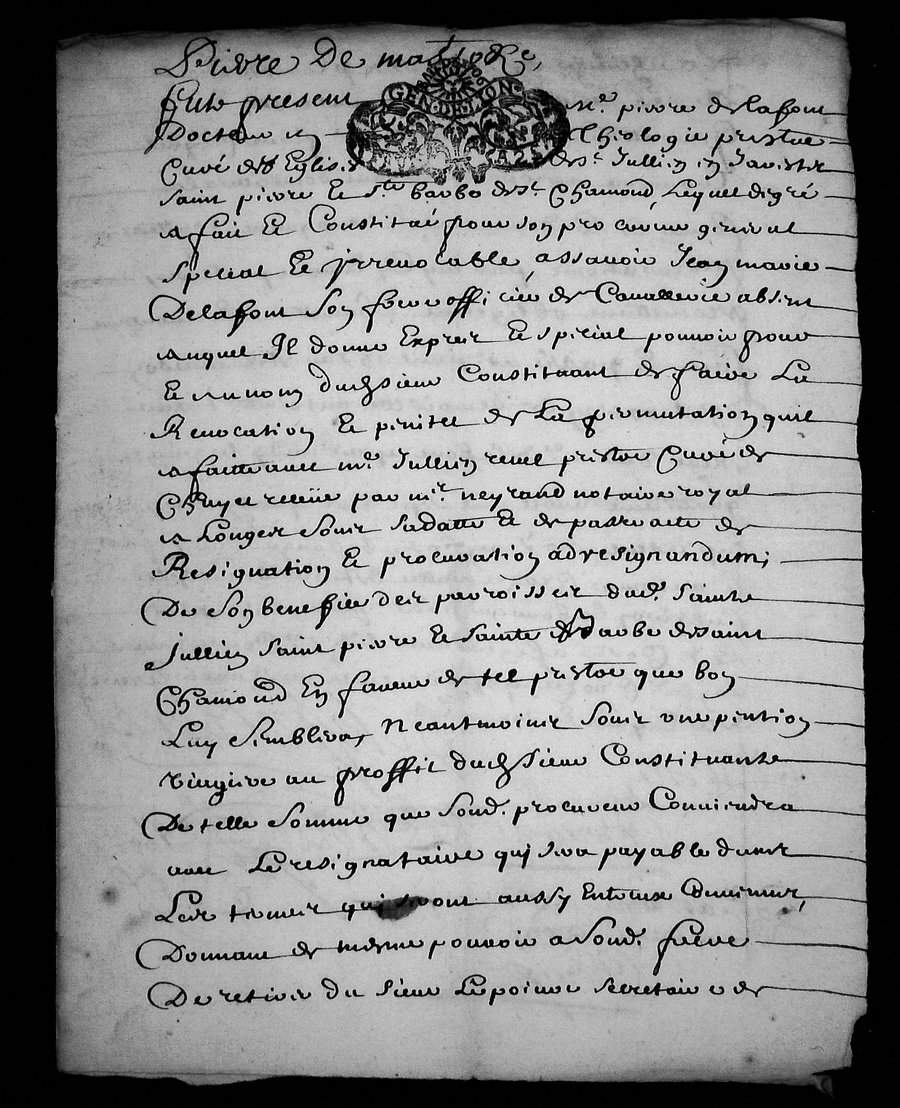 Pierre De
GEN · DE LYON
fut present Mre pierre delafont
Docteur en Theologie prestre
Curé des Eglises de St Jullien en Jarestz
Saint pierre et Ste barbe de St Chamond, Lequel de gré
a fait et Constitué pour son procureur general
special et irrevocable, assavoir Jean marie
Delafont Son frere officier de Cavallerie absent
auquel Il donne Exprez et special pouvoir pour
et au nom dudt sieur Constituant de faire La
Revocation et de La permutation quil
a faitte avec mre Jullien prestre Curé de
receüe par mr. neyrand notaire royal
a Sous Sa datte et de passer acte de
Resignation et procuration ad resignandum;
De Son benefice des parroisses dud. Saint
Jullien Saint pierre et Sainte barbe de Saint
Chamond En faveur de tel prestre que bon
Luy Semblera, Neantmoins Sous une pention
viagere au proffit dudt Sieur Constituant
De telle Somme que Sond. procureur Conviendra
avec Le resignataire qui sera payable dans
Les termes qui seront aussy Entreux Convenus,
Donnant de mesme pouvoir a Sond. frere
De retirer du Sieur Lepoivre Secretaire de